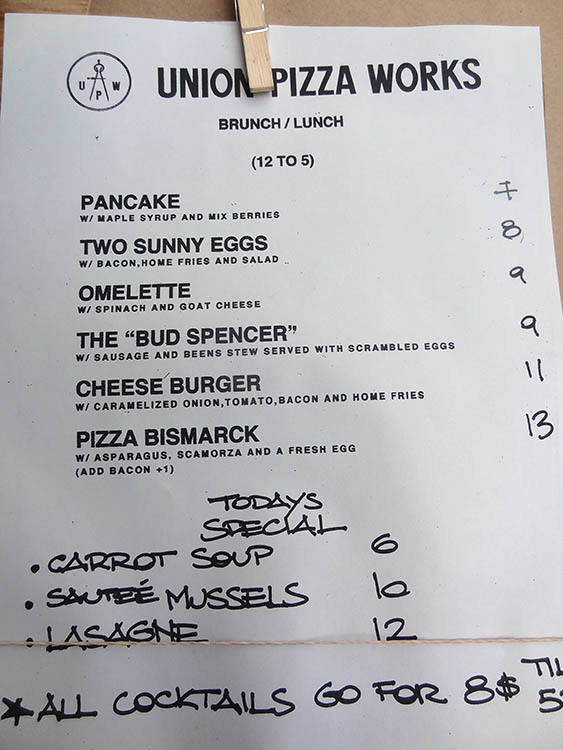 U P W
UNION PIZZA WORKS
BRUNCH / LUNCH
(12 TO 5)
PANCAKE 7
W/ MAPLE SYRUP AND MIX BERRIES
TWO SUNNY EGGS 8
W/ BACON,HOME FRIES AND SALAD
OMELETTE 9
W/ SPINACH AND GOAT CHEESE
THE “BUD SPENCER” 9
W/ SAUSAGE AND BEENS STEW SERVED WITH SCRAMBLED EGGS
CHEESE BURGER 11
W/ CARAMELIZED ONION,TOMATO,BACON AND HOME FRIES
PIZZA BISMARCK 13
W/ ASPARAGUS, SCAMORZA AND A FRESH EGG
(ADD BACON +1)
TODAYS
SPECIAL
• CARROT SOUP 6
• SAUTEÉ MUSSELS 10
• LASAGNE 12
* ALL COCKTAILS GO FOR 8$ TIL